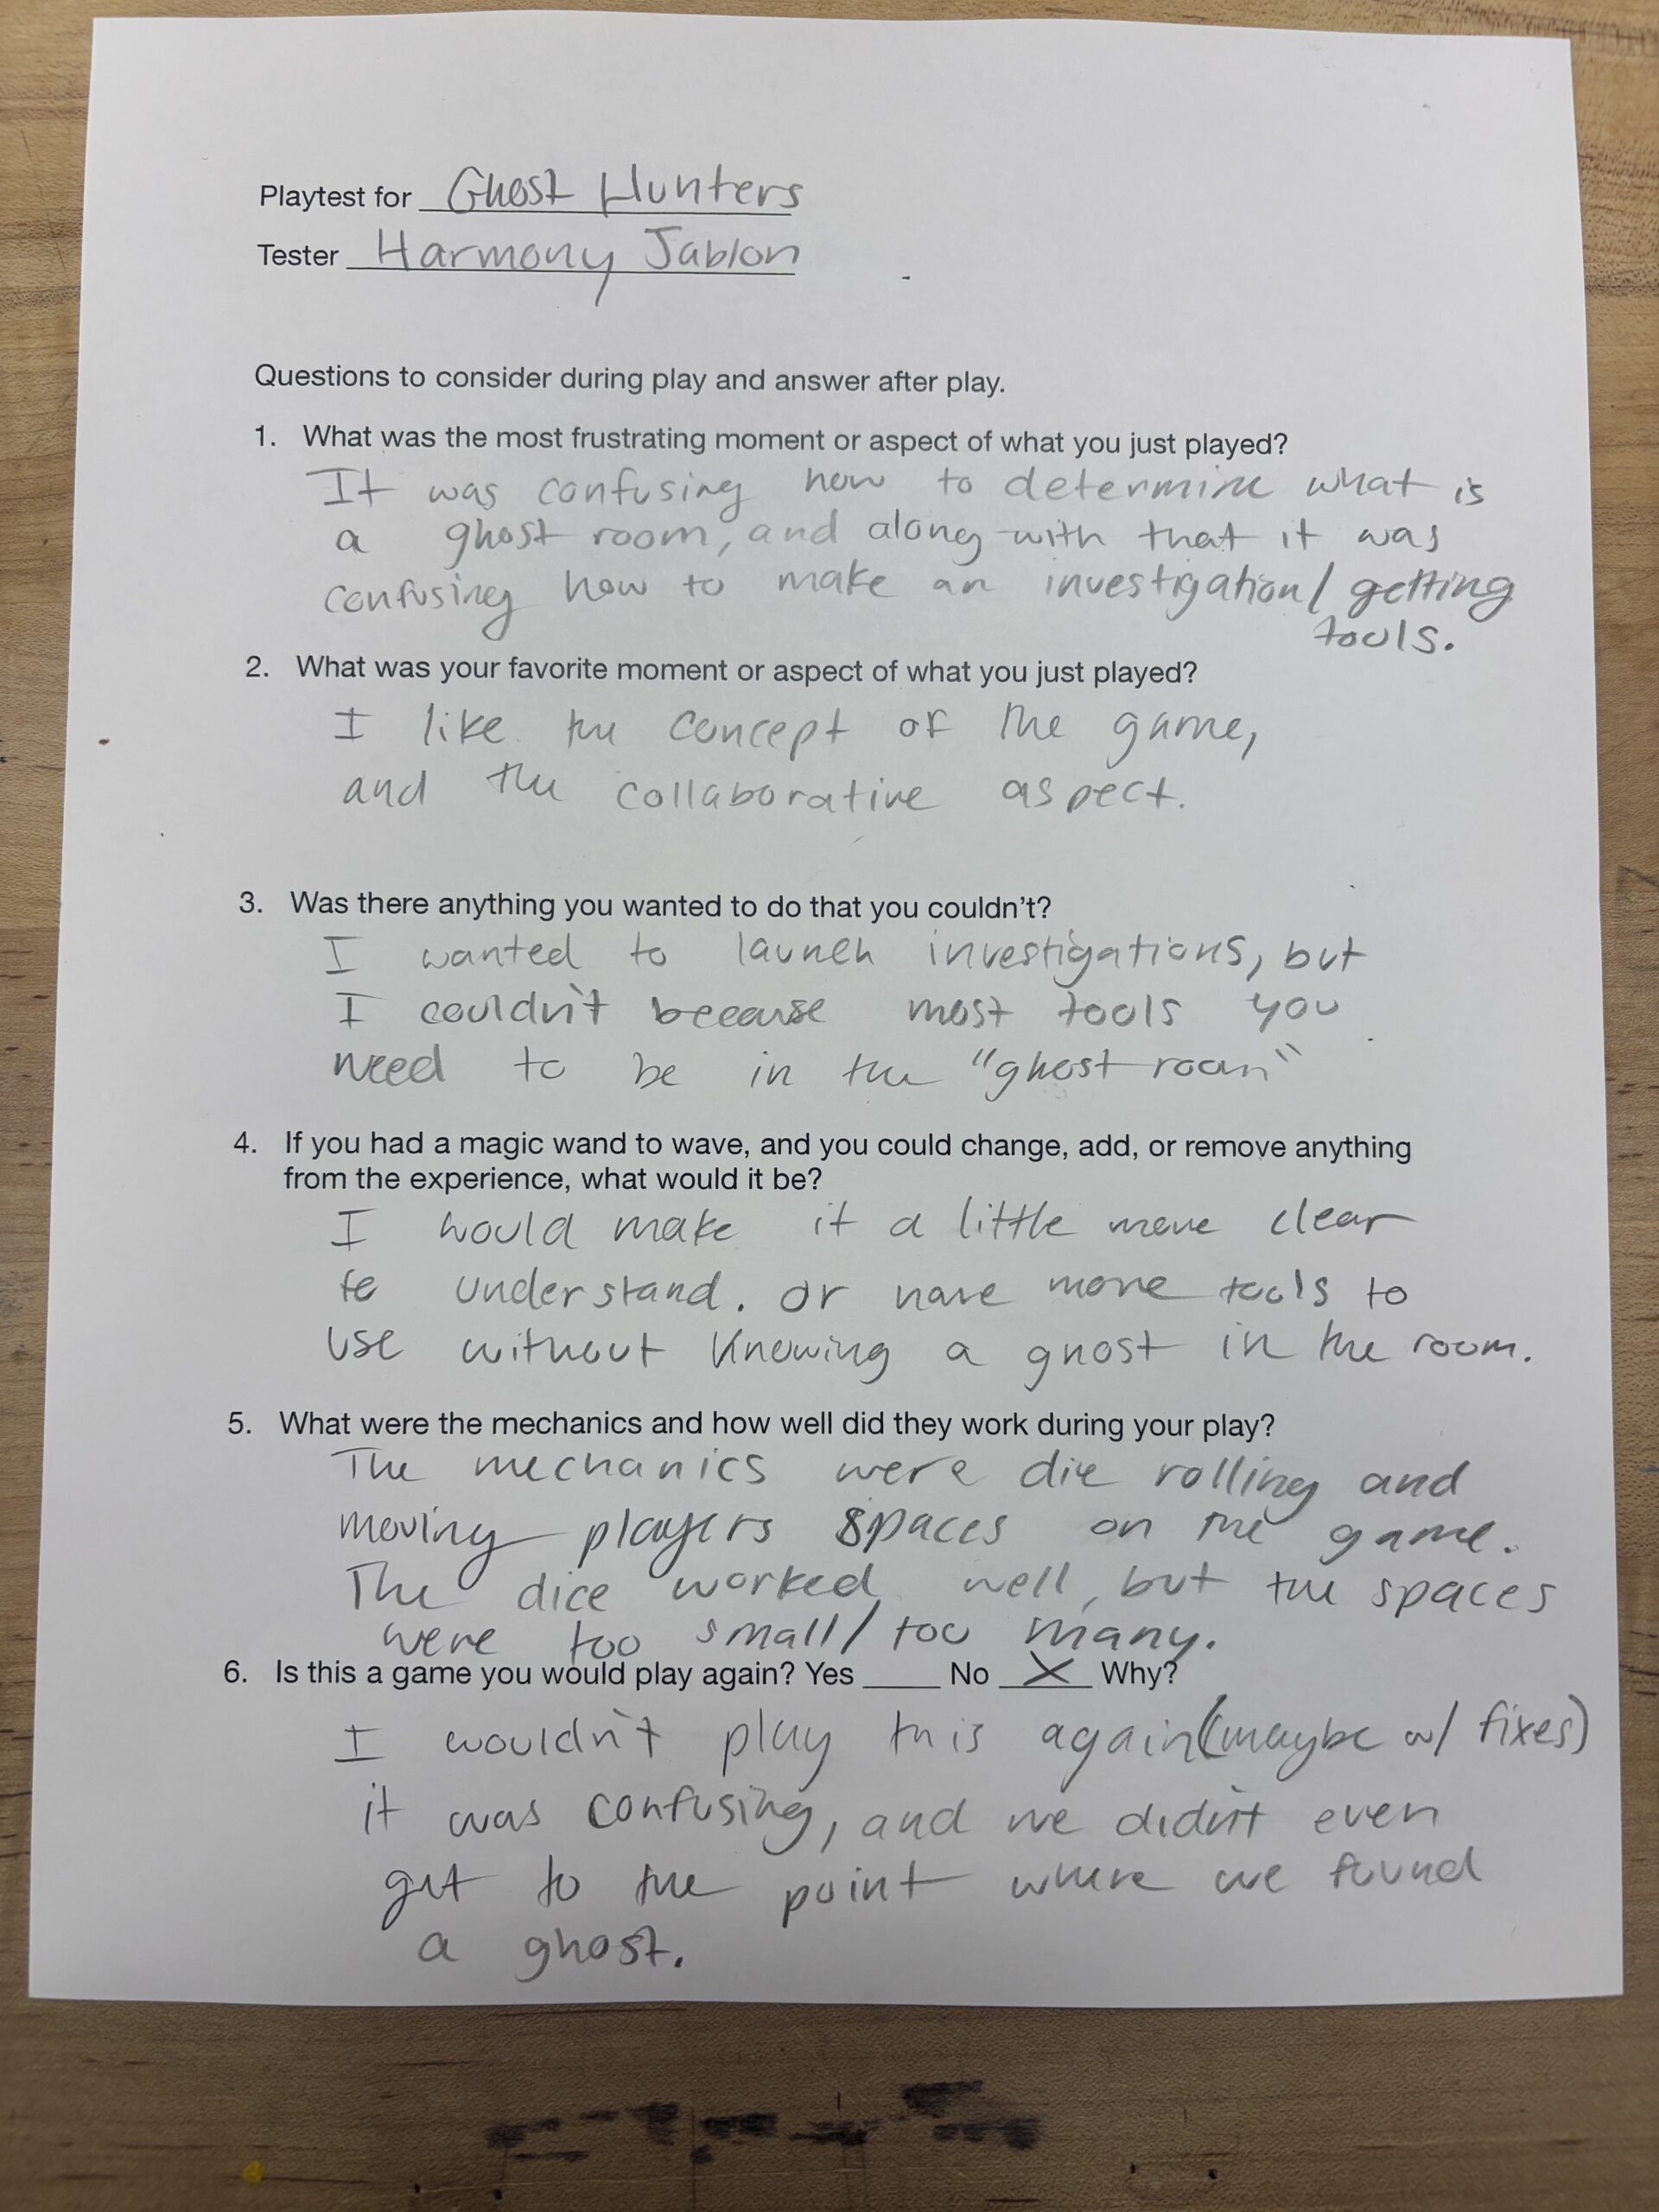 Playtest for Ghost Hunters
Tester Harmony Jablon
Questions to consider during play and answer after play.
1. What was the most frustrating moment or aspect of what you just played?
It was confusing how to determine what is
a ghost room, and along with that it was
confusing how to make an investigation/getting
tools.
2. What was your favorite moment or aspect of what you just played?
I like the concept of the game,
and the collaborative aspect.
3. Was there anything you wanted to do that you couldn't?
I wanted to launch investigations, but
I couldn't because most tools you
need to be in the "ghost room"
4. If you had a magic wand to wave, and you could change, add, or remove anything
from the experience, what would it be?
I would make it a little more clear
to understand. or have more tools to
use without knowing a ghost in the room.
5. What were the mechanics and how well did they work during your play?
The mechanics were die rolling and
moving players spaces on the game.
The dice worked well, but the spaces
were too small/too many.
6. Is this a game you would play again? Yes ____ No X Why?
I wouldn't play this again (maybe w/ fixes)
it was confusing, and we didn't even
get to the point where we found
a ghost.